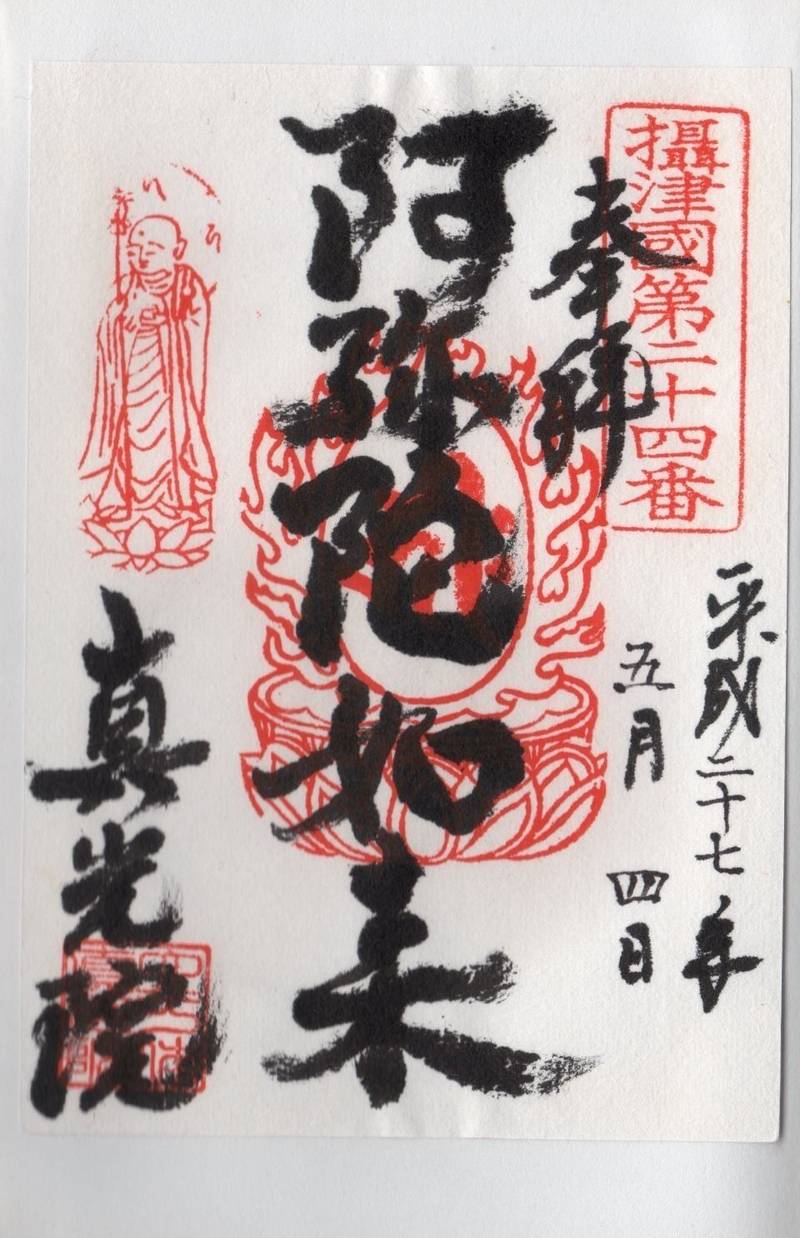 攝津國第二十四番
奉拝
平成二十七年
五月四日
阿弥陀如来
真光院